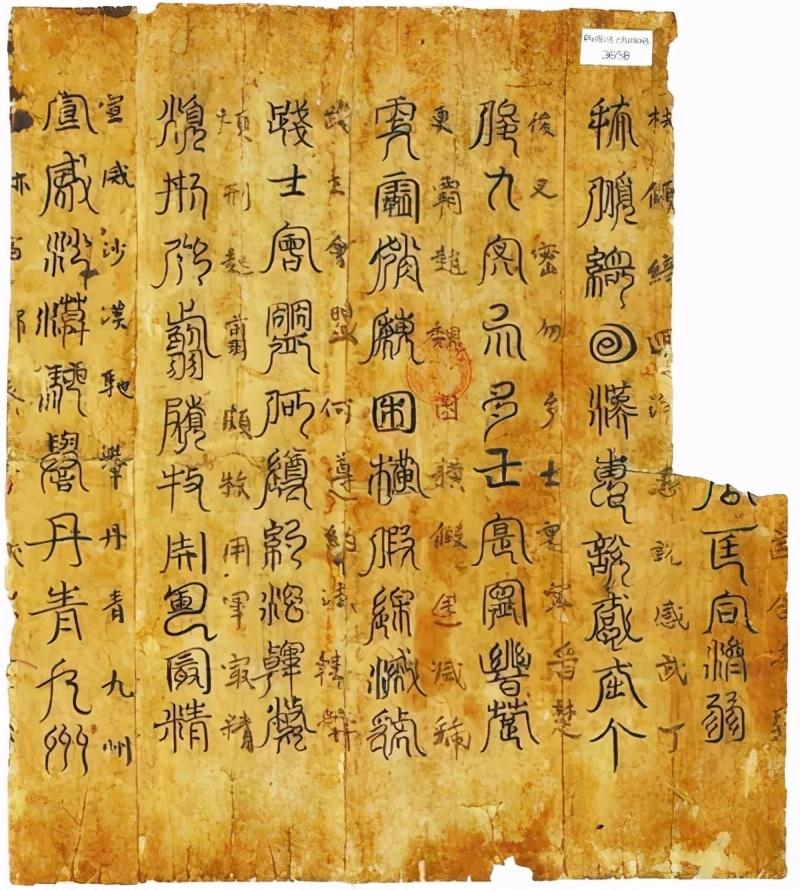 3658
公匡合濟弱
扶傾綺迴漢惠說感武丁
扶傾綺迴漢惠說感武丁
俊乂密勿多士寔寧晉楚
俊乂密勿多士寔寧晉楚
更霸趙魏困橫假途滅虢
更霸趙魏困橫假途滅虢
踐土會盟何遵約法韓弊
踐土會盟何遵約法韓弊
煩刑起翦頗牧用軍最精
煩刑起翦頗牧用軍最精
宣威沙漠馳譽丹青九州
宣威沙漠馳譽丹青九州